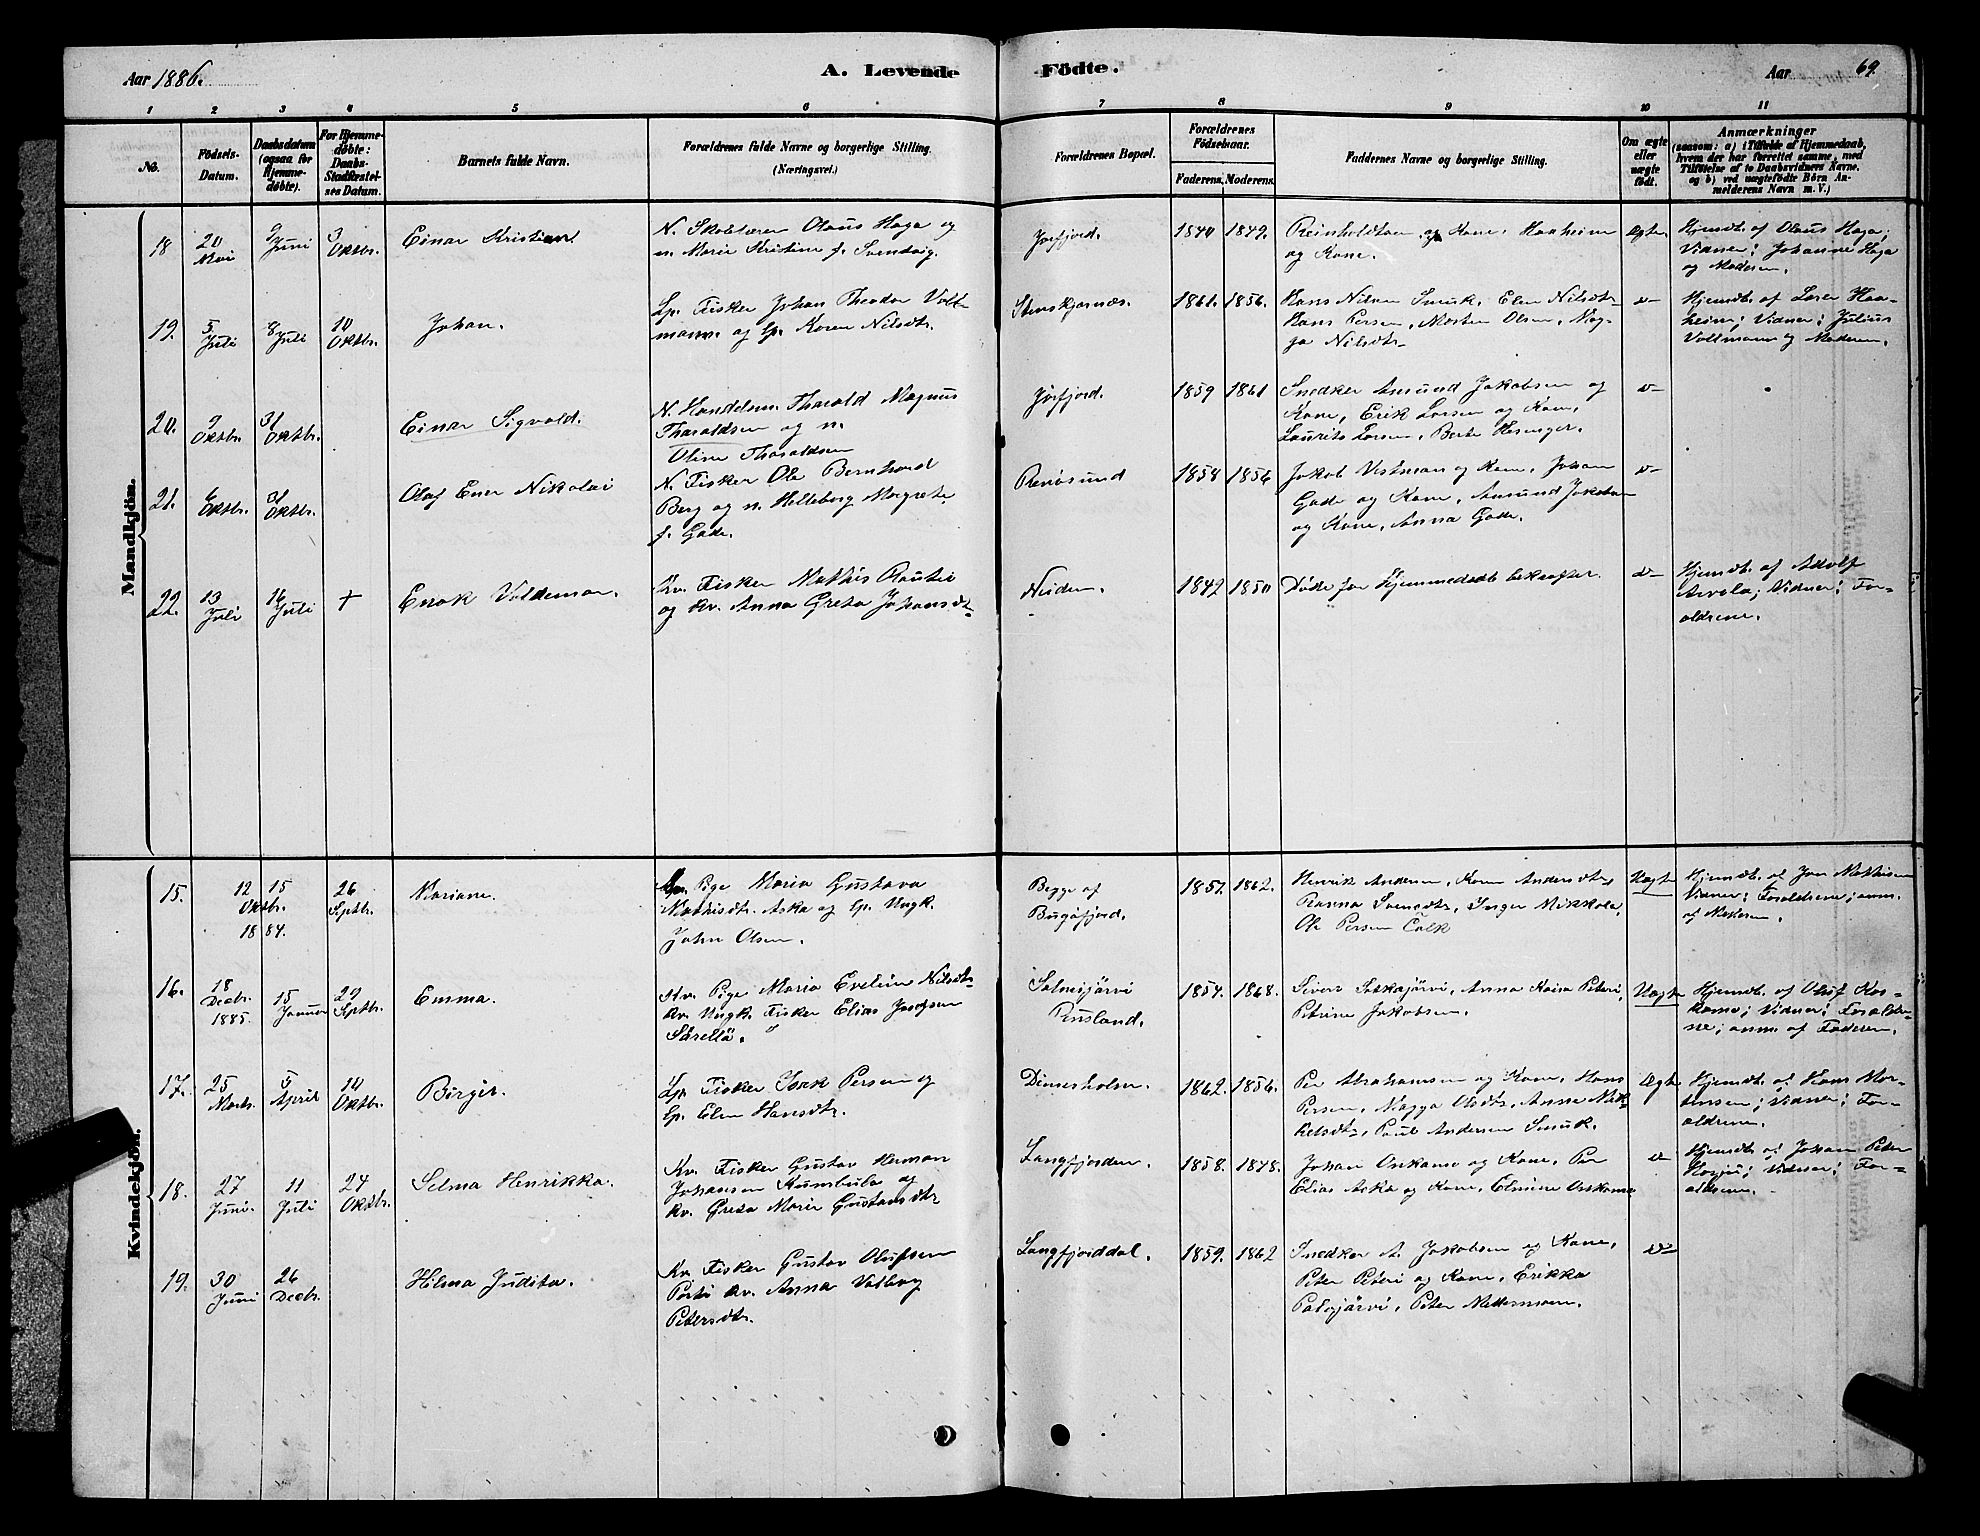 Aar 1886.
A. Levende
Födte.
Aar
69.
1 2 3 4 5 6 7 8 9 10 11
No.
Födsels-
Datum.
Daabsdatum
(ogsaa for
Hjemme-
döbte).
For Hjemme-
döbte:
Daabs-
Stadfæstel-
ses Datum.
Barnets fulde Navn.
Forældrenes fulde Navne og borgerlige Stilling.
(Næringsvei.)
Forældrenes Bopæl.
Forældrenes
Födselsaar.
Faderens. Moderens.
Faddernes Navne og borgerlige Stilling.
Om ægte
eller
uægte
födt.
Anmærkninger
(saasom: a) i Tilfælde af Hjemmedaab,
hvem der har forrettet samme, med
Tilföielse af to Daabsvidners Navne.
og b) ved uægtefödte Börn An-
melderens Navn m. V.)
Mandkjön.
18
20
Mai
9
Juni
3
Oktbr.
Einar Kristian
N. Skolelærer Olaus Haga og
n. Marie Kristine f. Svendsvig.
Jarfjord.
1840 1849.
Reinholdtsen og Kone, Haaheim
og Kone.
Ægte.
Hjemdt. af Olaus Haga;
Vidner: Johanne Haga
og Moderen.
19.
5
Juli
8
Juli
10
Oktbr.
Johan.
Lp. Fisker Johan Theodor Volt-
mann og lp. Karen Nilsdtr.
Stenskjærnæs.
1861. 1856.
Hans Nilsen Smuk, Elen Nilsdtr
Hans Persen, Morten Olsen, Mag-
ga Nilsdtr
d-
Hjemdt. af Lærer Haa-
heim; Vidner: Julius
Voltmann og Moderen.
20.
9
Oktbr.
31
Oktbr.
Einar Sigvald.
N. Handelsm. Tharald Magnus
Tharaldsen og n.
Oline Tharaldsen
Jarfjord.
1859 1861
Snedker Amund Jakobsen og
Kone, Erik Larsen og Kone,
Laurits Larsen, Berte Hesenger.
d-
21.
6
Oktbr.
31
Oktbr.
Olaf Ener Nikolai
N. Fisker Ole Bernhard
Berg og n. Helleborg Margrete
f. Gade.
Renøsund
1854 1856
Jakob Vestman og Kone, Johan
Gade og Kone, Amund Jakobsen
og Kone, Anna Gade.
d-
22.
13
Juli
16
Juli
+
Enok Valdemar.
Kv. Fisker Mathis Rautio
og kv. Anna Greta Johansdtr
Neiden.
1842 1850
Døde før Hjemmedaab bekræftet.
d-
Hjemdt. af Adolf
Arvola; Vidner: For-
ældrene.
Kvindekjön.
15.
12
Oktbr.
1884.
15
26
Sptbr.
Mariane.
Lp. Pige Maria Gustava
Mathisdtr. Aska og lp. Ungk.
John Olsen.
Begge af
Bugøfjord.
1857. 1862.
Henrik Andersen, Karen Andersdtr
Ranna Svendtr, Inger Mikkola,
Ole Persen Calk
Uægte
Hjemdt. af Jon Mathisen
Vidner: Forældrene; anm.
af Moderen.
16.
18
Decbr.
1885.
15
Januar
29
Sptbr.
Emma.
Kv. Pige Maria Eveline Nilsdtr
kv. Ungk. Fisker Elias Josefsen
Särellä.
Salmijärvi
Rusland.
1854. 1868.
Siver Saskajärvi, Anna Kaisa Peteri,
Petrine Jakobsen.
Uægte
Hjemdt. af Oluf Kos-
kamo; Vidner: Forældre-
ne; anm. af Faderen.
17.
25
Marts.
5
April
10
Oktbr.
Birgit.
Lp. Fisker Isak Persen og
lp. Elen Hansdtr.
Dinesholm.
1862. 1856.
Per Abrahamsen og Kone, Hans
Persen, Magga Olsdtr, Anne Mik-
kelsdtr, Paul Andersen Smuk.
Ægte
Hjemdt. af Hans Mor-
tensen; Vidner: For-
ældrene.
18.
27
Juni.
11
Juli
24
Oktbr.
Selma Henrikka.
Kv. Fisker Gustav Herman
Johansen Kumbula og
kv. Greta Maria Gustavsdtr
Langfjorden.
1858. 1848.
Johan Oskamo og Kone, Per
Elias Aska og Kone, Elmine Oskamo
d-
Hjemdt. af Johan Peter
Harju; Vidner: For-
ældrene.
19.
30
Juni
26
Decbr.
Hilma Judita.
Kv. Fisker Gustav Olufsen
Porti kv. Anna Valborg
Petersdtr.
Langfjorddal.
1859. 1862
Snedker A. Jakobsen og Kone,
Peter Peteri og Kone, Erikka
Palojärvi, Peter Mettemann.
d-